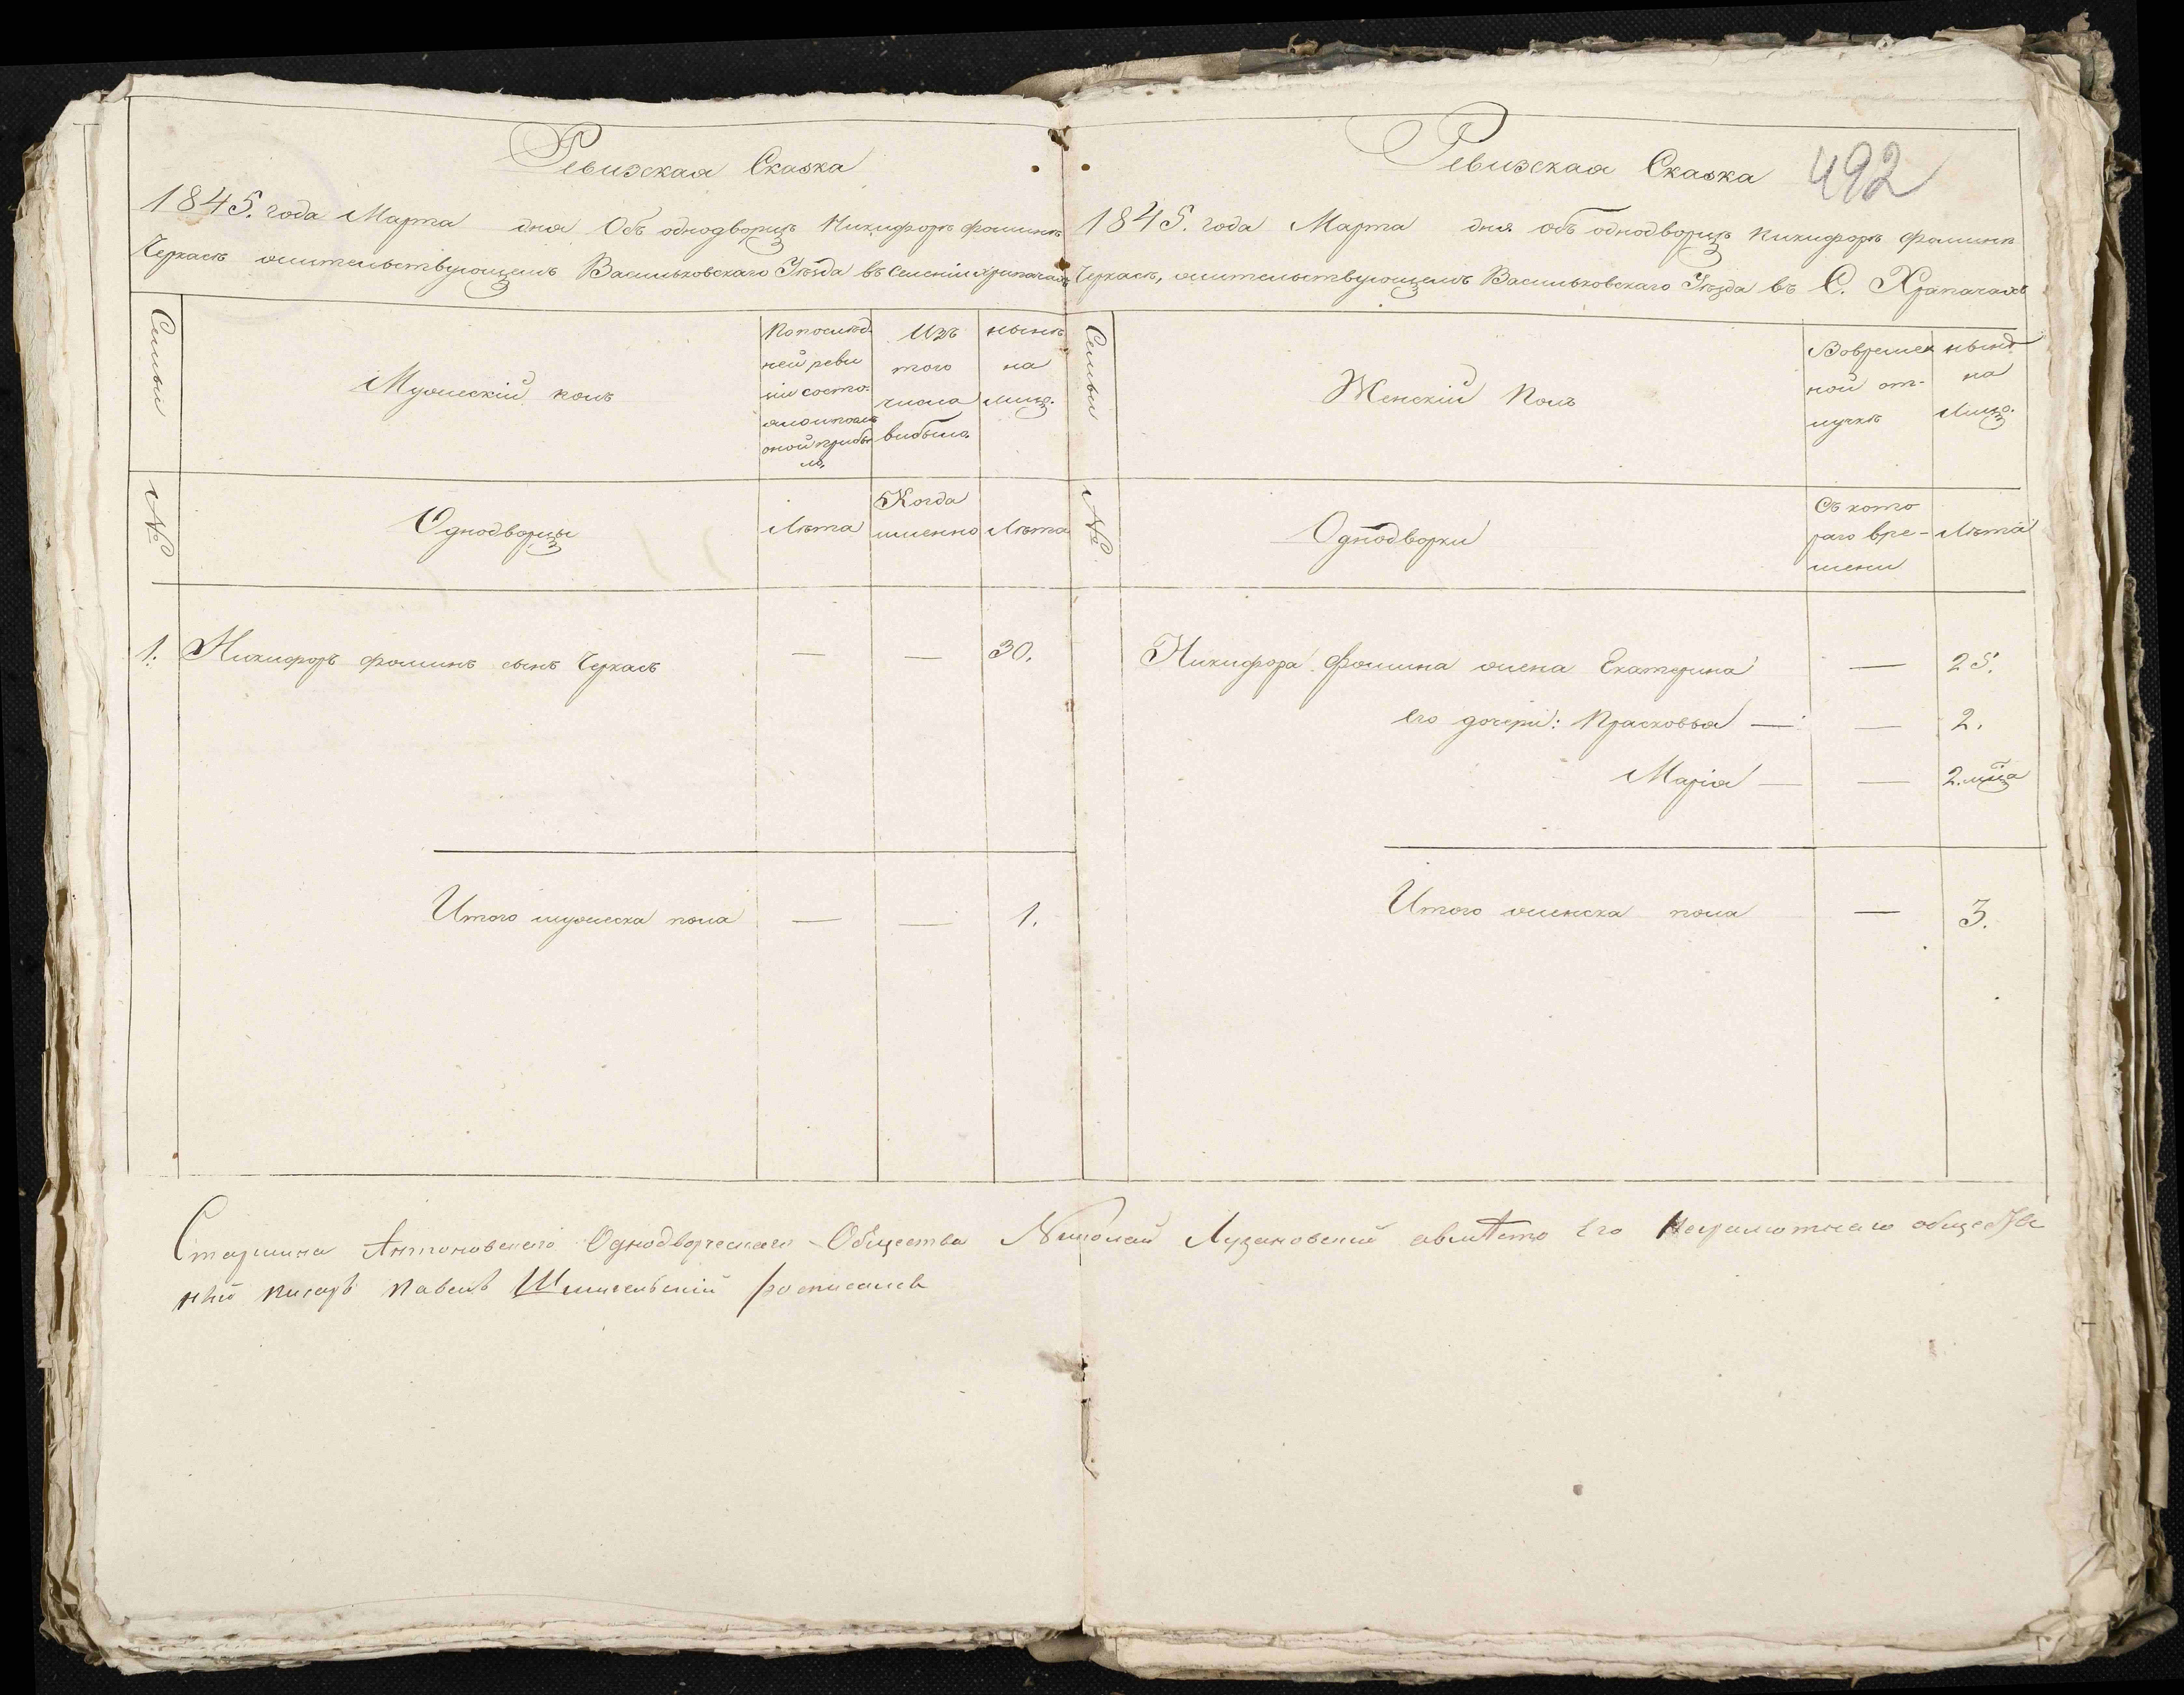 Ревизская Сказка
1845. года Марта дня Объ однодворцѣ Никифорѣ Фоминѣ
Черкасѣ жительствующемъ Васильковскаго Уѣзда въ селеніи Храпачахъ
Семьи
Мужескій полъ
По послѣд-
ней реви
зіи состо-
яло и послѣ
оной прибы
ло,
Изъ
того
числа
выбыло
нынѣ
на
лицо.
№
Однодворцы
Лѣта
Когда
именно
Лѣта
1. Никифоръ Фоминъ сынъ Черкасъ — — 30.
Итого мужеска пола — — 1.
Ревизская Сказка 492
1845. года Марта дня объ однодворцѣ Никифорѣ Фоминѣ
Черкасѣ, жительствующемъ Васильковскаго Уѣзда въ С. Храпачахъ
Семьи
Женскій Полъ
Вовремен
ной от-
лучкѣ
нынѣ
на
Лицо.
№
Однодворки
Съ кото
раго вре-
мени
Лѣта
Никифора Фомина жена Екатерина — 25.
Его дочери: Прасковья — — 2.
Марія — — 2. мца
Итого женска пола — 3.
Старшина Антоновского Однодворческаго Общества Николай Лузановскій авмѣсто Его Неграмотнаго обществе
ный писарь Павелъ росписался